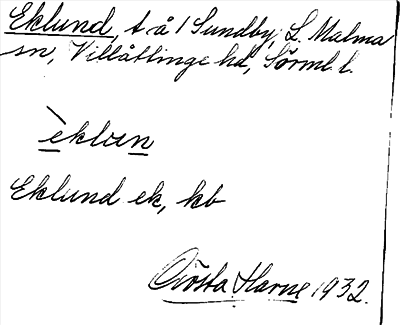 Eklund, t å 1 Sundby, L. Malma
sn, Villåttinge hd, Sörml. l.
èkløn
Eklund ek, kb
Gösta Harne 1932.